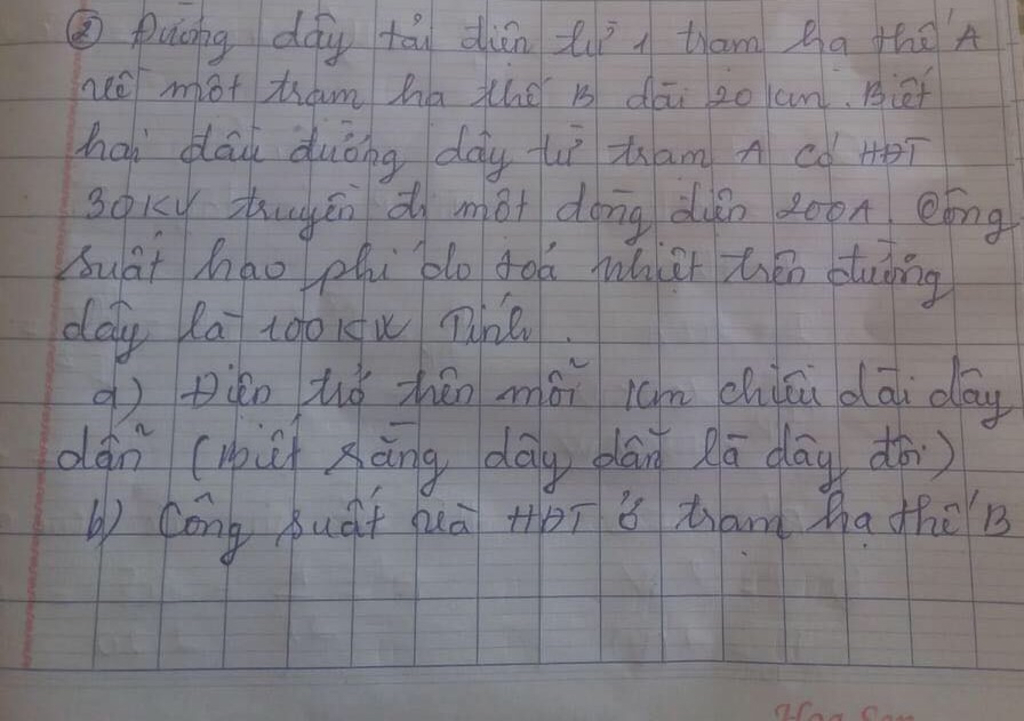 ② Đường dây tải điện từ 1 trạm hạ thế A
về một trạm hạ thế B dài 20 km. Biết
hai đầu đường dây từ trạm A có HĐT
30KV truyền đi một dòng điện 200A. Công
suất hao phí do toả nhiệt trên đường
dây là 100KW Tính.
a) Điện trở trên mỗi 1km chiều dài dây
dẫn (biết rằng dây dẫn là dây đôi)
b) Công suất và HĐT ở trạm hạ thế B